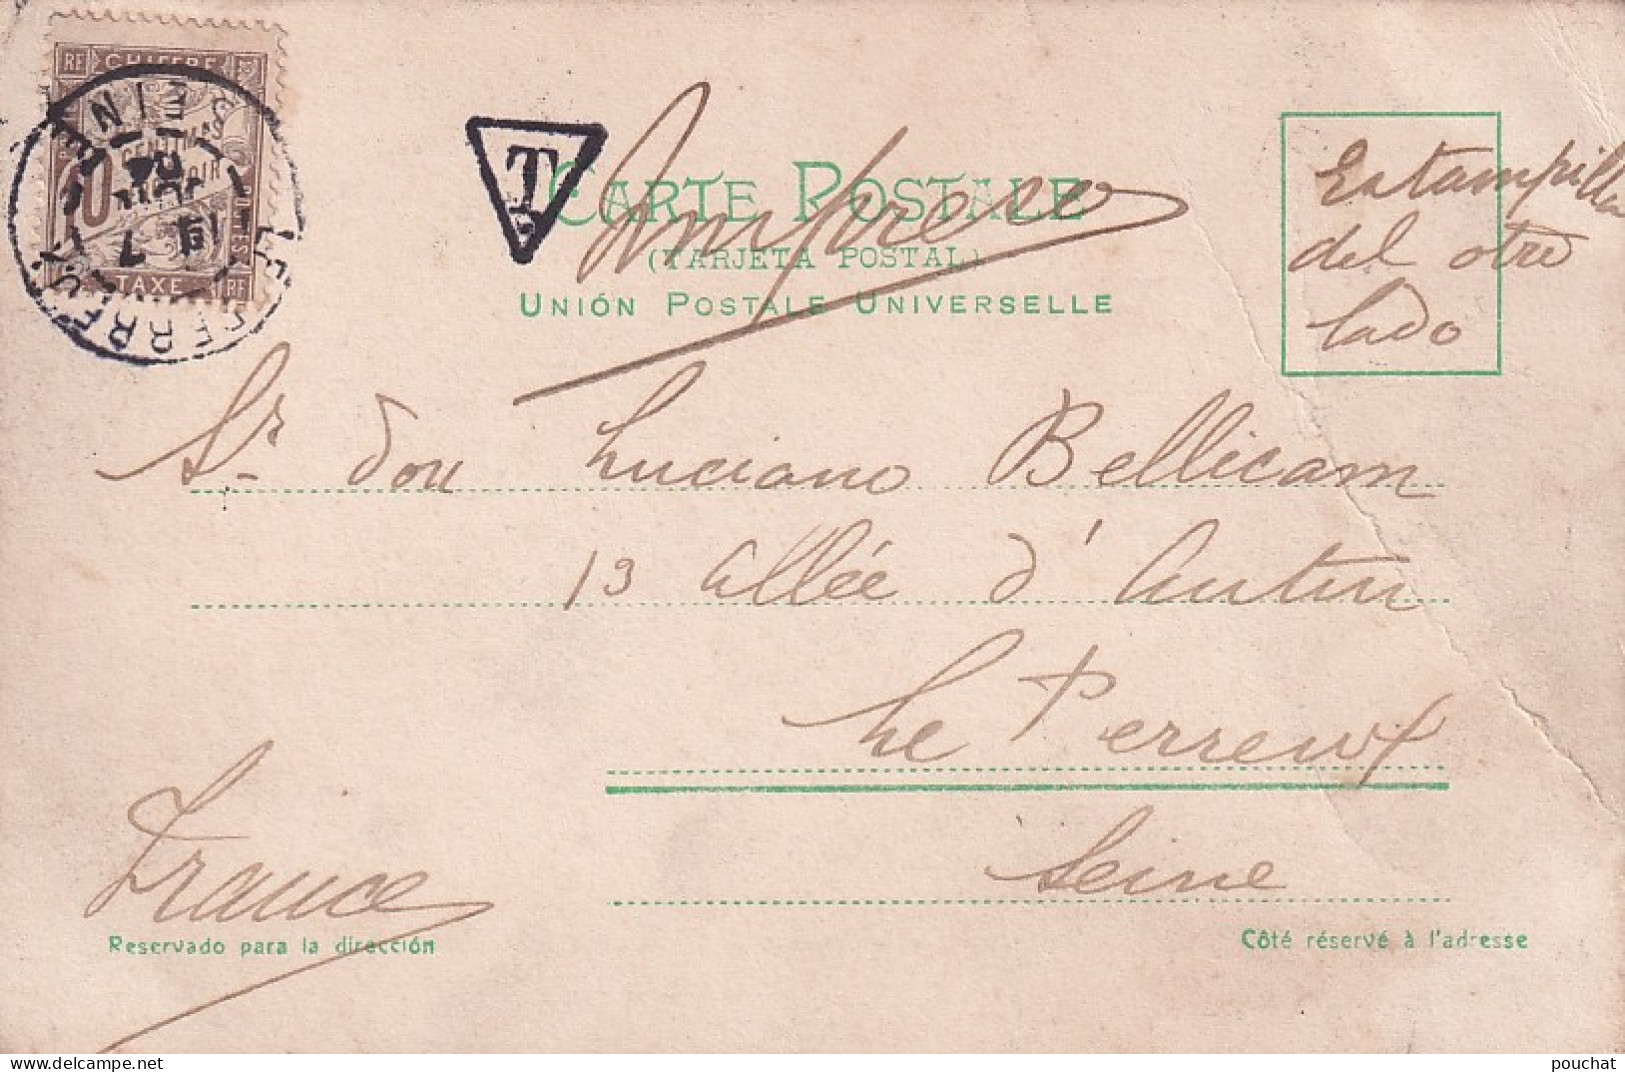 RF CHIFFRE
CENTIMES
10
TAXE RF
LE PERREUX
SEINE
T
CARTE POSTALE
(TARJETA POSTAL)
UNIÓN POSTALE UNIVERSELLE
Impreso
Estampilla
del otro
lado
Sr don Luciano Bellicam
13 Allée d'Antin
Le Perreux
Seine
France
Reservado para la dirección
Côté réservé à l'adresse
pouchat